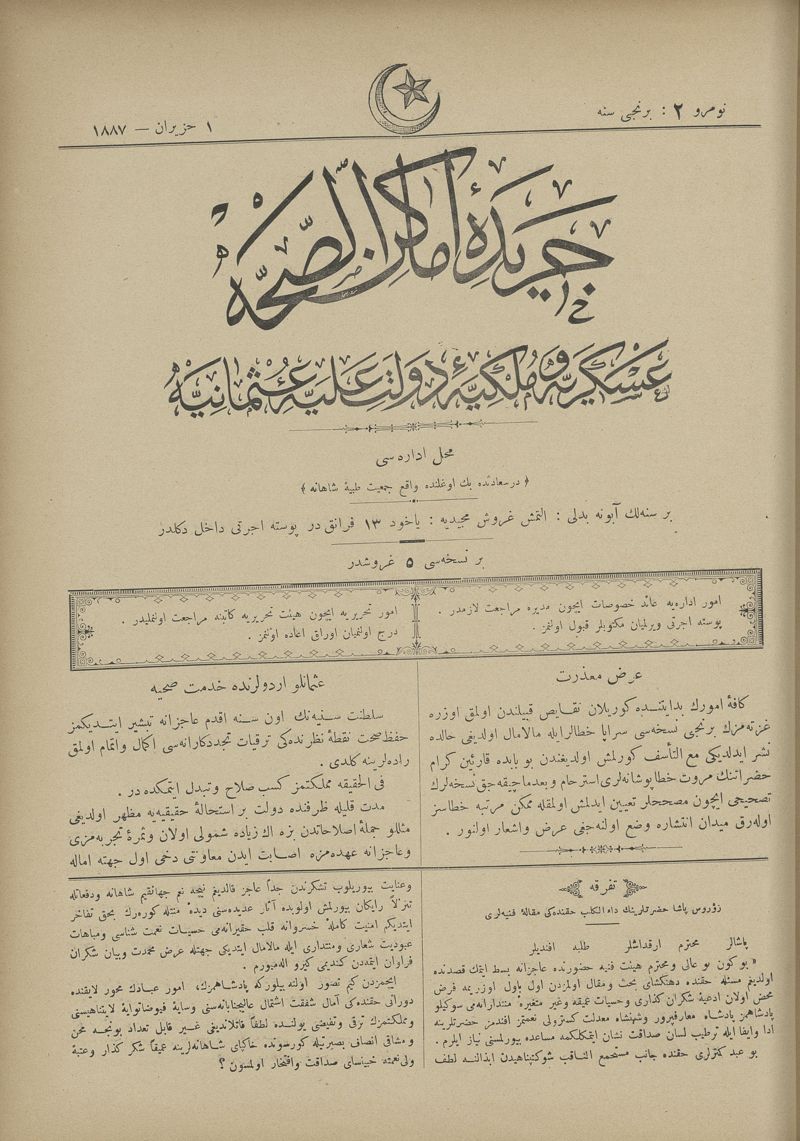 نومرو ٢ : برنجی سنه
١ حزیران — ١٨٨٧
جریدهٔ اماكن الصّحّه
عسكریه و ملكیهٔ دولت علیهٔ عثمانیه
محل اداره‌سی
﴿ درسعادتده بك اوغلنده واقع جمعیت طبیهٔ شاهانه ﴾
بر سنه‌لك آبونه بدلی : التمش غروش مجیدیه : یاخود ١٣ فرانق در پوسته اجرتی داخل دكلدر
بر نسخه‌سی ٥ غروشدر
امور اداریه‌یه عائد خصوصات ایچون مدیره مراجعت لازمدر .
پوسته اجرتی ویرلمیان مكتوبلر قبول اولنمز .
امور تحریریه ایچون هیئت تحریریه كاتبنه مراجعت اولنملیدر .
درج اولنمیان اوراق اعاده اولنمز .
عرض معذرت
كافهٔ امورك بدایتنده كوریلان نقایص قبیلندن اولمق اوزره
غزته‌مزك برنجی نسخه‌سی سراپا خطالرایله مالامال اولدیغی حالده
نشر ایدلدیكی مع التأسف كورلمش اولدیغندن بو بابده قارئین كرام
حضراتنك مروت خطاپوشانه‌لری استرحام و بعدما چیقه‌جق نسخه‌لرك
تصحیحی ایچون مصححلر تعیین ایدلمش اولمقله ممكن مرتبه خطاسز
اوله‌رق میدان انتشاره وضع اولنه‌جغی عرض و اشعار اولنور .
عثمانلو اردولرنده خدمت صحیه
سلطنت سنیه‌نك اون سنه اقدم عاجزانه تبشیر ایتدیكمز
حفظ صحت نقطهٔ نظرنده‌كی ترقیات تجددكارانه‌سی اكمال و اتمام اولمق
راده‌لرینه كلدی .
فی الحقیقه مملكتمز كسب صلاح و تبدل ایتمكده در .
مدت قلیله ظرفنده دولت بر استحالهٔ حقیقیه‌یه مظهر اولدیغی
مثللو جملهٔ اصلاحاتدن بزه اك زیاده شمولی اولان و ثمرهٔ تجربه‌مزی
و عاجزانه عهده‌مزه اصابت ایدن معاونتی دخی اول جهته اماله
تفرقه
زؤروس پاشا حضرتلرینك داء الكلب حقنده‌كی مقالهٔ فنیه‌لری
پاشالر محترم ارقداشلر طلبه افندیلر
« بو كون بو عالی و محترم هیئت فنیه حضورنده عاجزانه بسط ایتمك قصدنده
اولدیغم مسئله حقنده دهنكشای بحث و مقال اولمزدن اول باول اوزریمه فرض
محض اولان ادعیهٔ شكران كذاری و حسیات عمیقه و غیر متغیرهٔ منتدارانه‌می سوكیلو
پادشاهمز پادشاه معارفپرور و شهنشاه معدلت كسترولی نعمتمز افندمز حضرتلرینه
ادا و ایفا ایله ترطیب لسان صداقت نشان ایتمكلكمه مساعده بیورلمسنی نیاز ایلرم .
بو عبد كمترلری حقنده جانب مستجمع المناقب شوكتپناهیدن ابذال‌نه لطف
و عنایت بیوریلوب تشكرندن جداً عاجز قالدیغم نیجه نعم جهانقیم شاهانه و دفعاتله
تنزلاً رایكان بیورلمش اولوبده آثار عدیده‌سنی دیدهٔ منتله كوره‌رك بحق تفاخر
ایتدیكم امنیت كاملهٔ خسروانه قلب حقیرانه‌می حسیات نعمت شناسی و مباهات
عبودیت شعاری و منتداری ایله مالامال ایتدیكی جهتله عرض محمدت و بیان شكران
فراوان ایتمه‌دن كندیمی كیرو اله‌میورم .
ایچمزدن كیم تصور اولنه‌بیلوركه پادشاهمزك، امور عبادك محور لایقنده
دورانی حقنده‌كی آمال شفقت اشتمال عالیجنابانه‌سنی و سایهٔ فیوضاتوایهٔ لایتناهیسنی
و مملكتمزك ترقی و تفیضی یولنده لطفاً قاتلاندیغی غیر قابل تعداد بونجه محن
و مشاقی انصافی بصیرتیله كورسونده خاكپای شاهانه‌لرینه عمیقاً شكر كذار و عتبهٔ
ولی‌نعمته جبینسای صداقت و افتخار اولمسون ؟